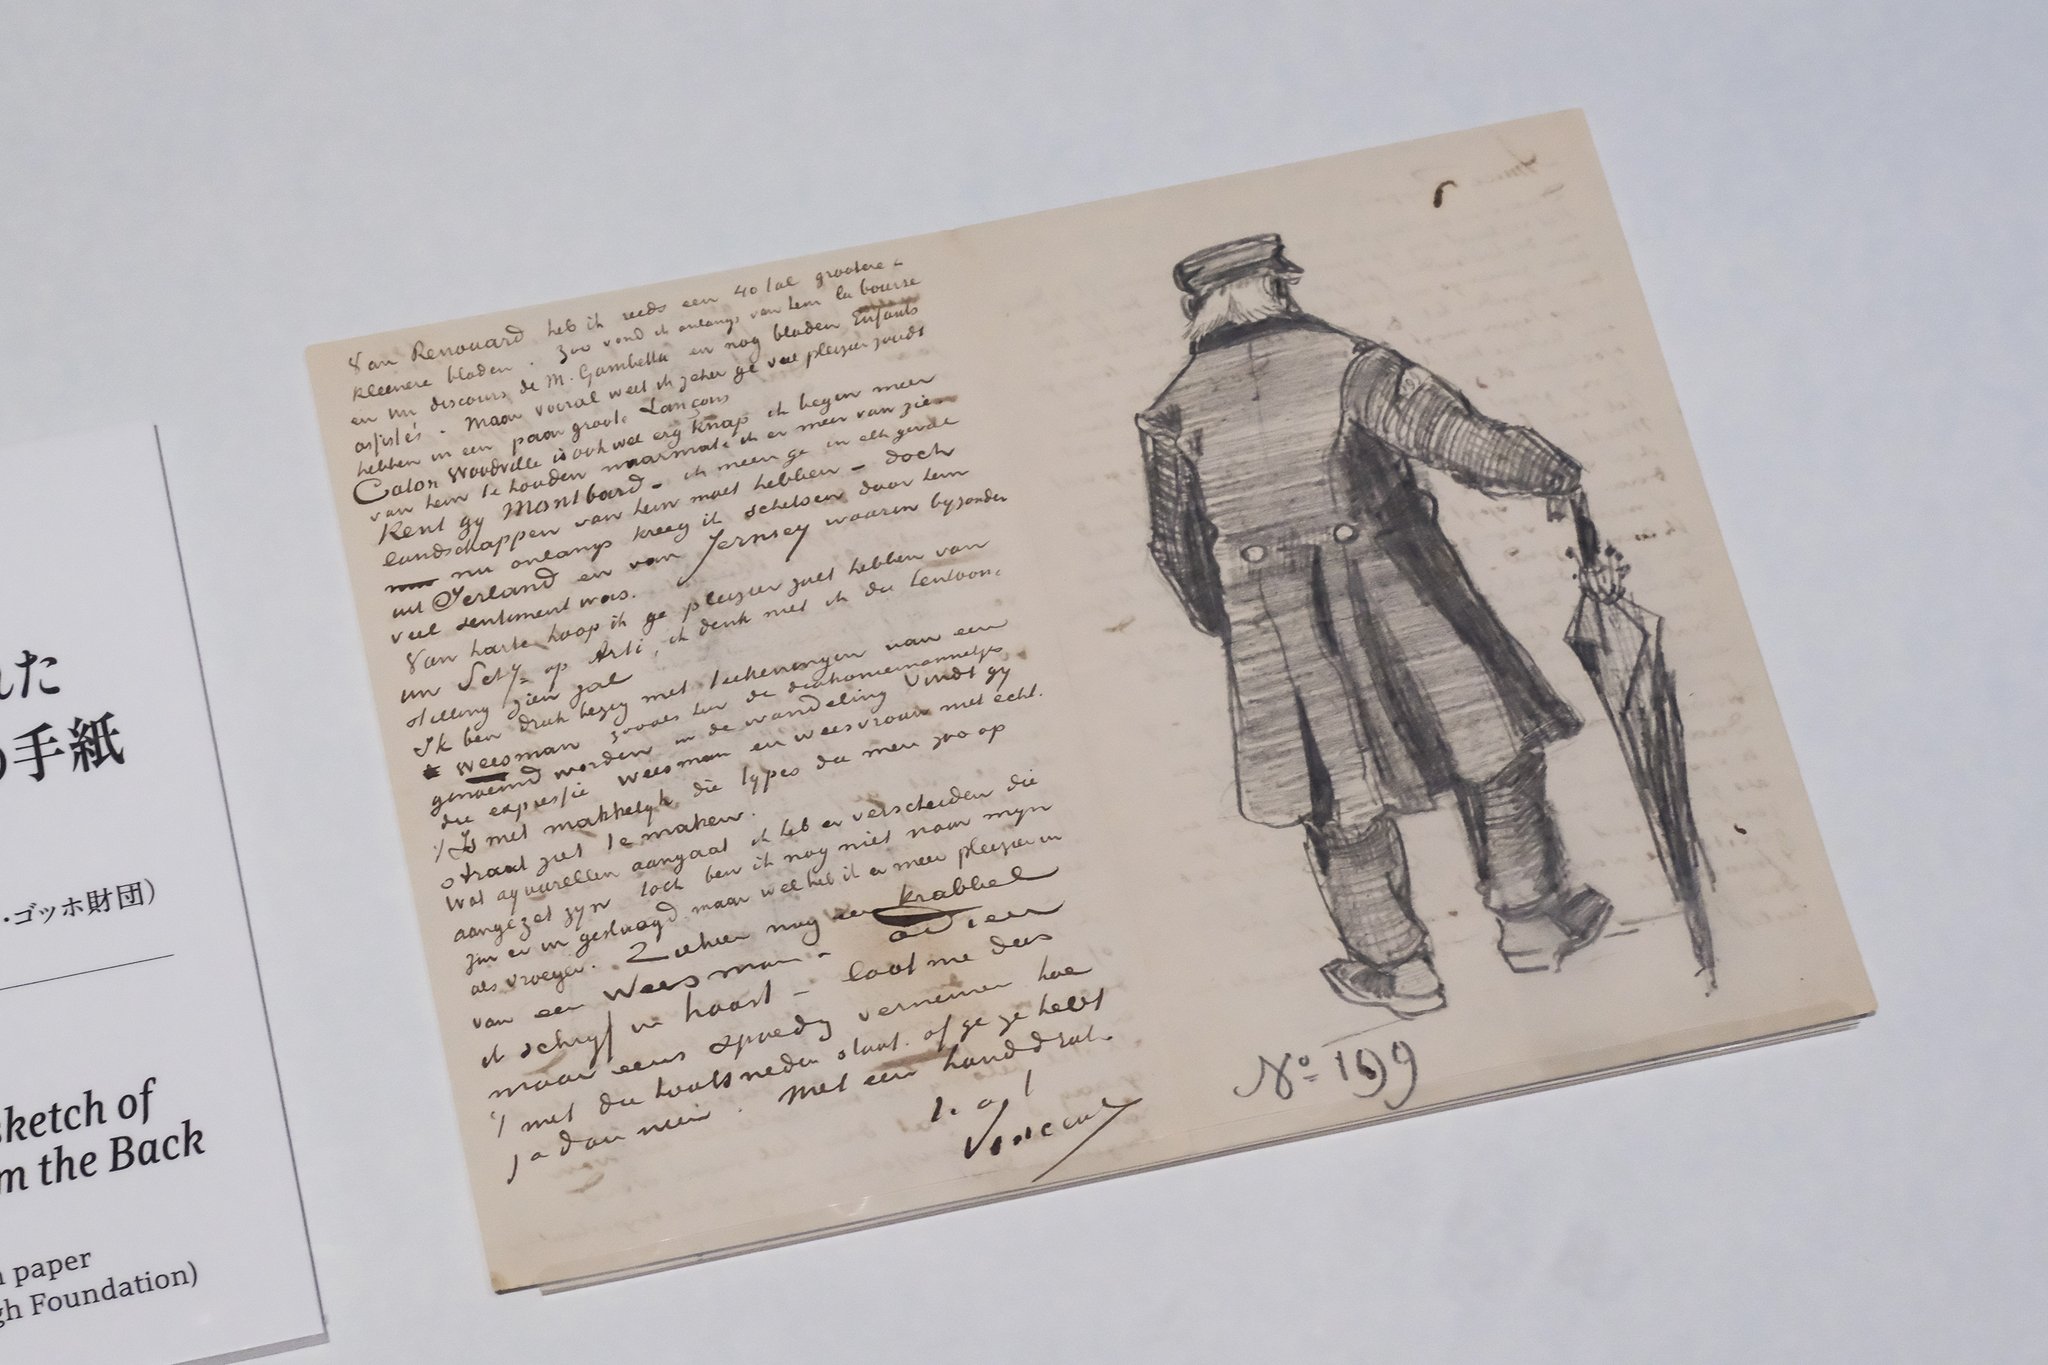 れた
の手紙
・ゴッホ財団)
sketch of
m the Back
n paper
gh Foundation)
Van Renouard heb ik reeds een 40 tal grootere &
kleenere bladen. Zoo vond ik onlangs van hem la bourse
en un discours de M. Gambetta en nog bladen Enfants
assistés. Maar vooral weet ik zeker ge veel pleizier zoudt
hebben in een paar groote Lançons
Caton Woodville is ook wel erg knap ik begin meer
van hem te houden naarmate ik er meer van zie.
Kent gy Montbard – ik meen ge in elk geval
landschappen van hem moet hebben – doch
nu onlangs kreeg ik schetsen door hem
uit Ierland en van Jersey waarin byzonder
veel sentiment was.
Van harte hoop ik ge pleizier zult hebben van
uw Sch/y= op Arti, ik denk niet ik die tentoon=
stelling zien zal
Ik ben druk bezig met teekeningen van een
weesman zooals hier de diakoniemannetjes
genoemd worden in de wandeling Vindt gy
die expressie weesman en weesvrouw niet echt.
't Is niet makkelyk die types die men zoo op
straat ziet te maken.
Wat aquarellen aangaat ik heb er verscheiden die
aangezet zyn toch ben ik nog niet naar myn
zin er in geslaagd maar wel heb ik er meer pleizier in
als vroeger. Ziehier nog een krabbel
van een weesman – adieu
ik schryf in haast – laat me dus
maar eens spoedig vernemen hoe
't met die houtsneden staat. of ge ze hebt
ja dan neen. Met een handdruk.
t. à t.
Vincent
No 199